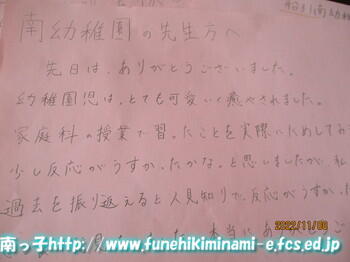 南幼稚園の先生方へ
先日は、ありがとうございました。
幼稚園児は、とても可愛いく癒やされました。
家庭科の授業で習ったことを実際にためしてお
少し反応がうすかったかな。と思いましたが、私
過去を振り返えると人見知りで、反応がうすかった
2022/11/08
南っ子http://www.funehikiminami-e.fcs.ed.jp